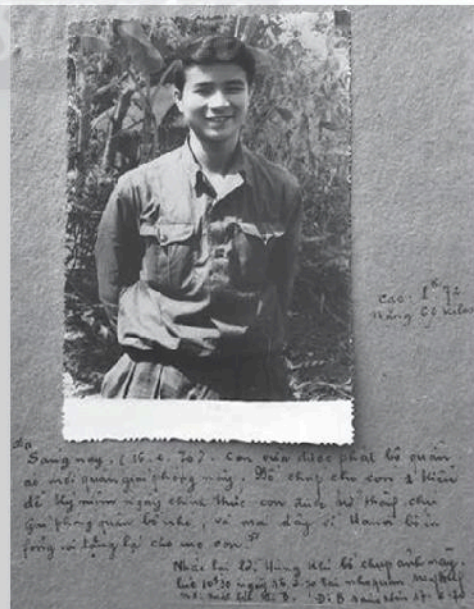 Cao: 1m 72
nặng 60 kilos
Ba
Sáng nay, (16.4.70). Con vừa được phát bộ quần
áo mới quân giải phóng này. Bố chụp cho con 1 kiểu
để kỷ niệm ngày chính thức con được trở thành chú
giải phóng quân bố nhé, về mai đây đi Hanoi bố in
fóng và tặng lại cho mẹ con.
Nhắc lại lời Hùng khi bố chụp ảnh này
lúc 10h30 ngày 16.4.70 tại nhà
trước khi đi B. Đi B